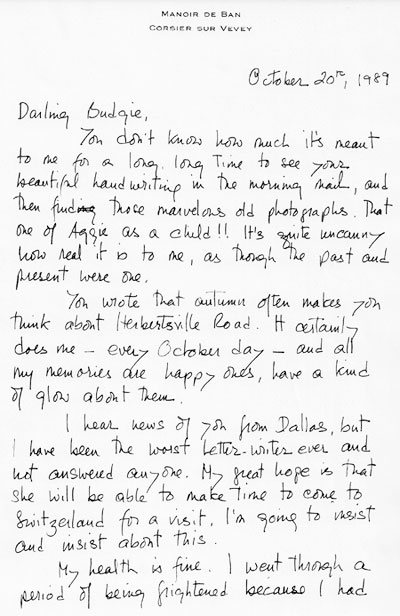 MANOIR DE BAN
CORSIER SUR VEVEY
October 20th, 1989
Darling Budgie,
You don't know how much it's meant
to me for a long, long time to see your
beautiful handwriting in the morning mail, and
then finding those marvelous old photographs. That
one of Aggie as a child!! It's quite uncanny
how real it is to me, as though the past and
present were one.
You wrote that autumn often makes you
think about Herbertsville Road. It certainly
does me – every October day – and all
my memories are happy ones, have a kind
of glow about them.
I hear news of you from Dallas, but
I have been the worst letter-writer ever and
not answered anyone. My great hope is that
she will be able to make time to come to
Switzerland for a visit. I'm going to insist
and insist about this.
My health is fine. I went through a
period of being frightened because I had